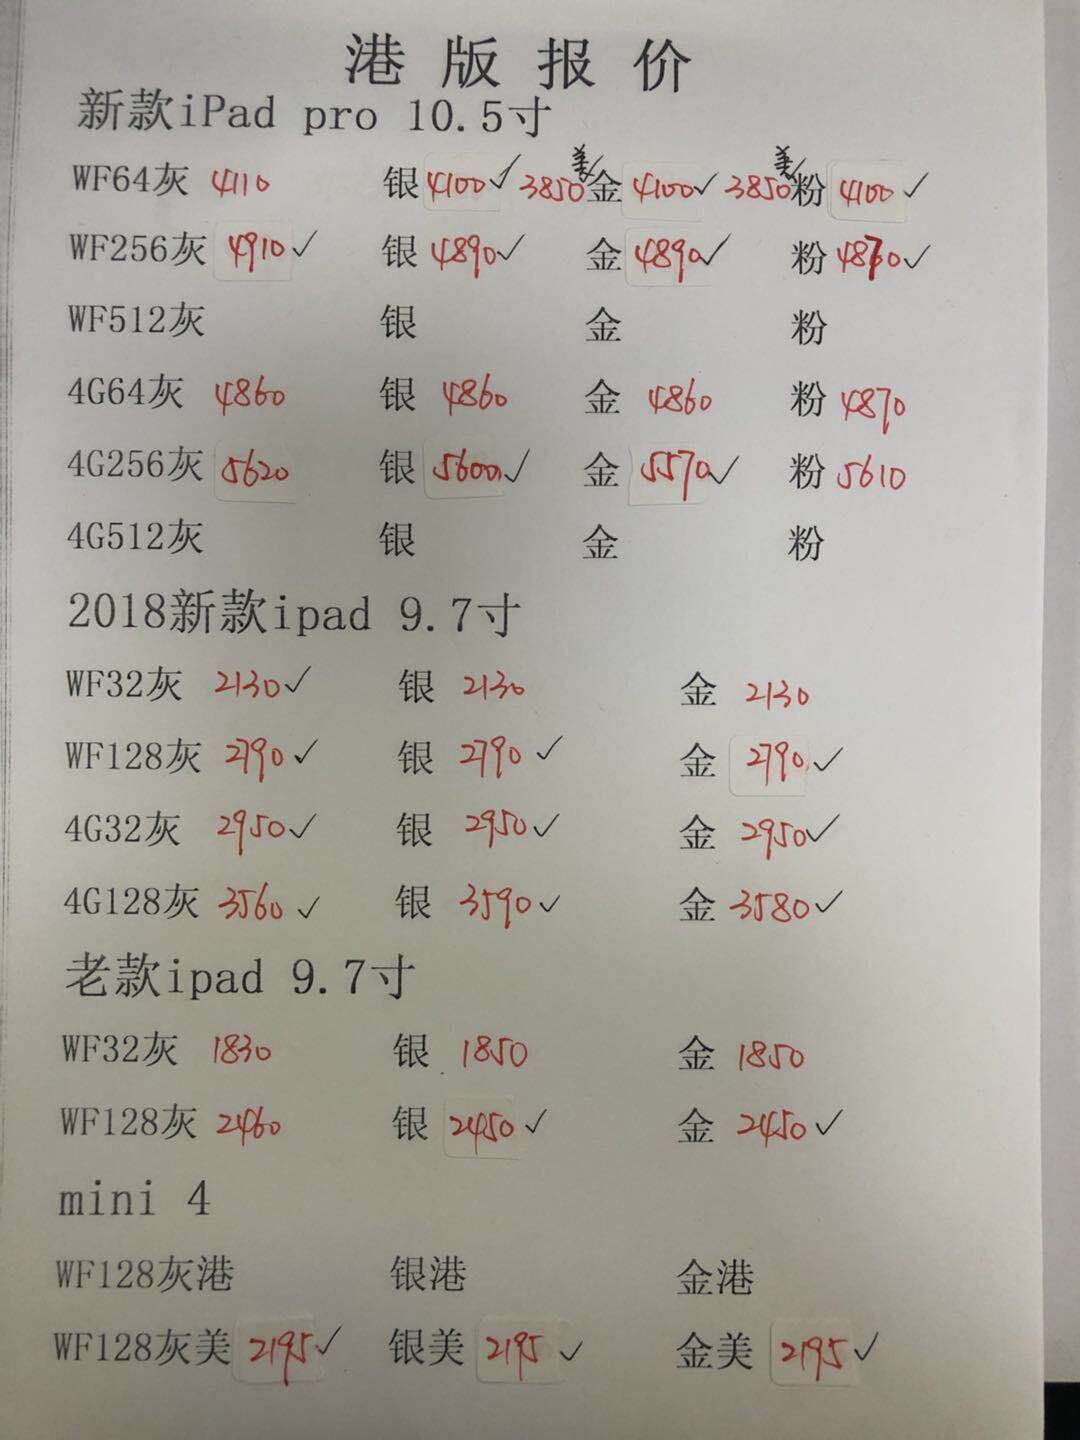 港版报价
新款iPad pro 10.5寸
WF64灰 4110 银 4100✓ 3850美 金 4100✓ 3850美 粉 4100✓
WF256灰 4910✓ 银 4890✓ 金 4890✓ 粉 4870✓
WF512灰 银 金 粉
4G64灰 4860 银 4860 金 4860 粉 4870
4G256灰 5620 银 5600✓ 金 5570✓ 粉 5610
4G512灰 银 金 粉
2018新款ipad 9.7寸
WF32灰 2130✓ 银 2130 金 2130
WF128灰 2790✓ 银 2790✓ 金 2790✓
4G32灰 2950✓ 银 2950✓ 金 2950✓
4G128灰 3560✓ 银 3590✓ 金 3580✓
老款ipad 9.7寸
WF32灰 1830 银 1850 金 1850
WF128灰 2460 银 2450✓ 金 2450✓
mini 4
WF128灰港 银港 金港
WF128灰美 2195✓ 银美 2195✓ 金美 2195✓